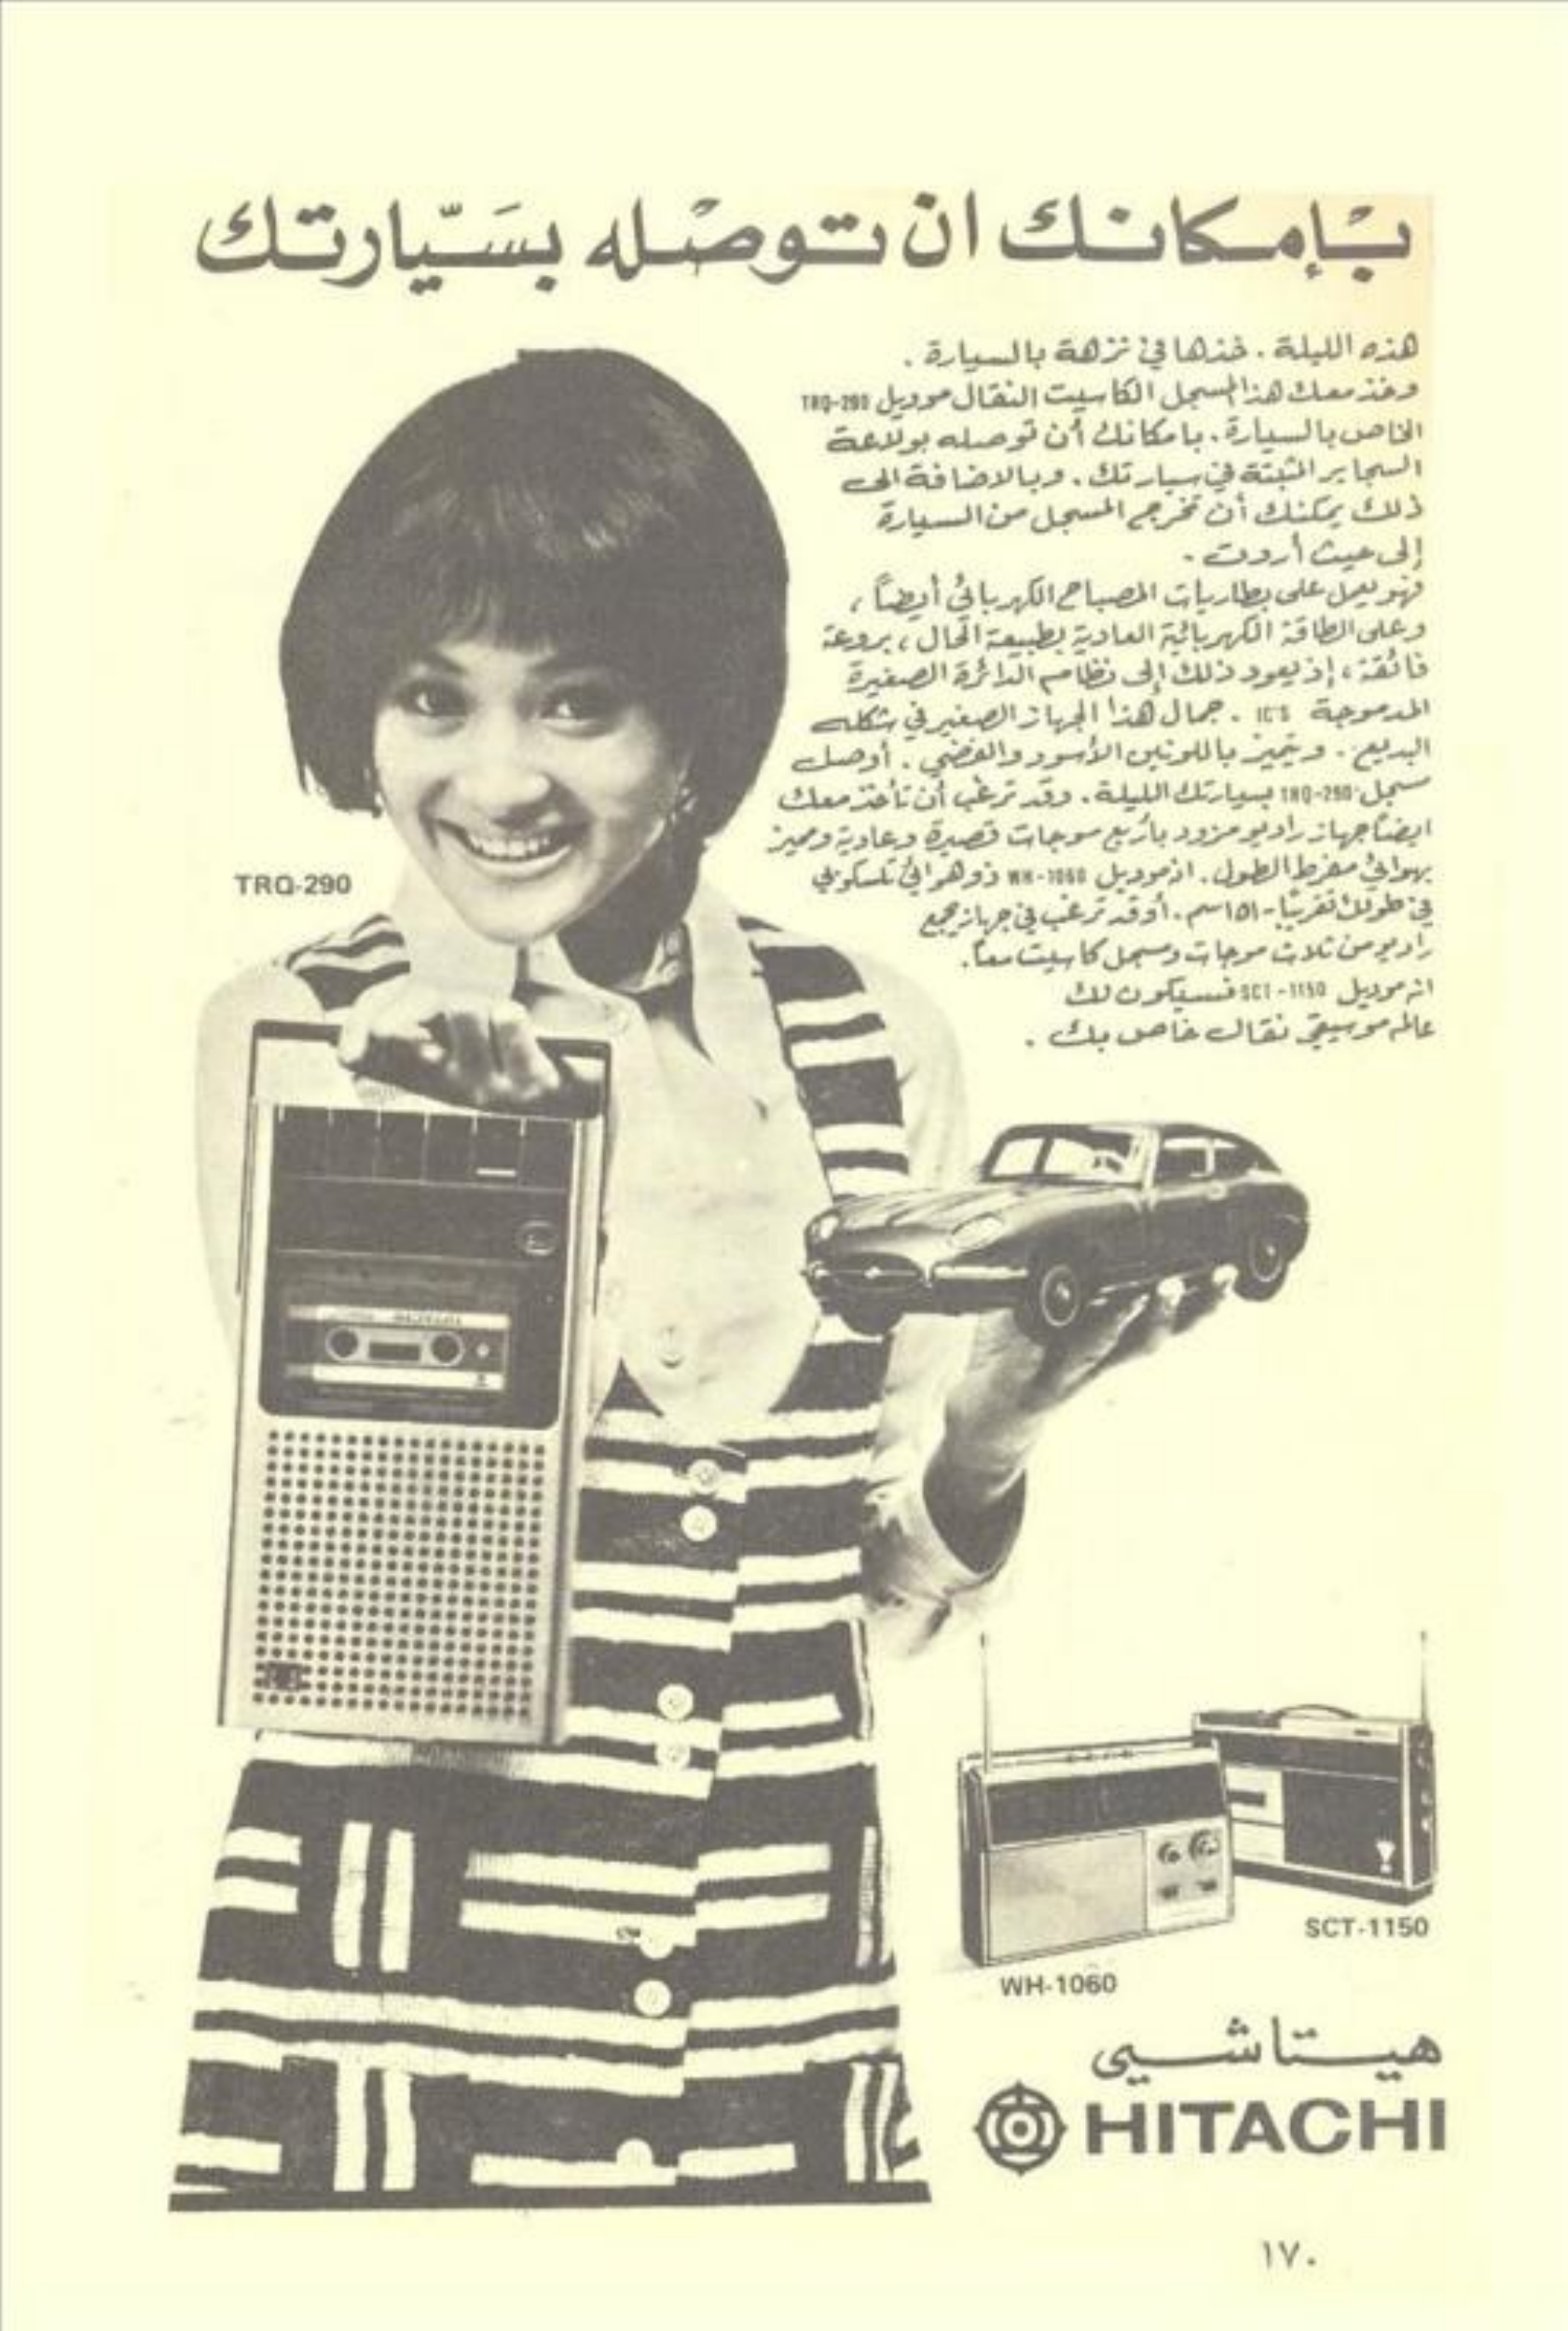 بإمكانك ان توصله بسَيّارتك
هذه الليلة . خذها في نزهة بالسيارة .
وخذ معك هذا المسجل الكاسيت النقال موديل TRQ-290
الخاص بالسيارة . بامكانك أن توصله بولاعة
السجاير المثبتة في سيارتك . وبالاضافة الى
ذلك يمكنك أن تخرج المسجل من السيارة
إلى حيث أردت .
فهو يعمل على بطاريات المصباح الكهربائي أيضاً ،
وعلى الطاقة الكهربائية العادية بطبيعة الحال ، بروعة
فائقة ، إذ يعود ذلك إلى نظام الدائرة الصغيرة
المدموجة IC'S . جمال هذا الجهاز الصغير في شكله
البديع . ويتميز باللونين الأسود والفضي . أوصل
مسجل TRQ-290 بسيارتك الليلة . وقد ترغب أن تأخذ معك
ايضاً جهاز راديو مزود بأربع موجات قصيرة وعادية ومميز
بهوائي مفرط الطول . انه موديل WH-1060 ذو هوائي تلسكوبي
في طولك تقريبًا - ١٥١ سم . أو قد ترغب في جهاز يجمع
راديو من ثلاث موجات ومسجل كاسيت معاً .
انه موديل SCT-1150 فسيكون لك
عالم موسيقي نقال خاص بك .
TRQ-290
SCT-1150
WH-1060
هيتاشي
HITACHI
١٧٠